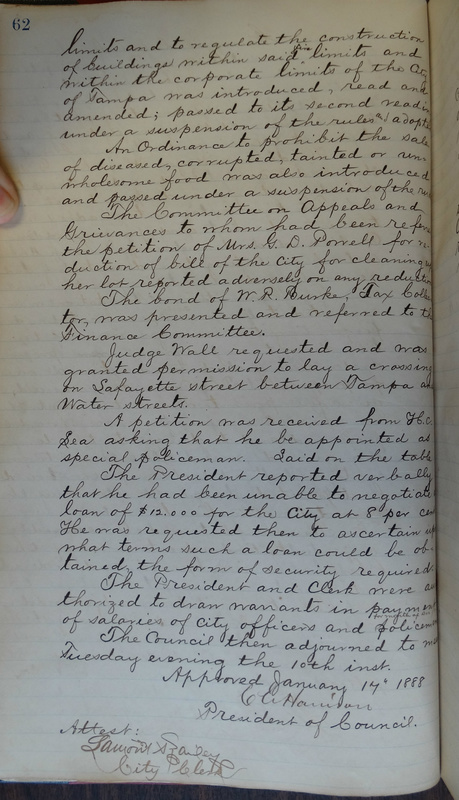 62
limits and to regulate the construction
of buildings within said fire limits and
within the corporate limits of the City
of Tampa was introduced, read and
amended; passed to its second readin
under a suspension of the rules & adopte
An Ordinance to prohibit the sale
of diseased, corrupted, tainted or un-
wholesome food was also introduced
and passed under a suspension of the ru
The Committee on Appeals and
Grievances to whom had been refer
the petition of Mrs. G. D. Powell for re
duction of bill of the City for cleaning
her lot reported adversely on any reductio
The bond of W. R. Burke, Tax Collec
tor, was presented and referred to th
Finance Committee.
Judge Wall requested and was
granted permission to lay a crossing
on Lafayette street between Tampa an
Water streets.
A petition was received from H. C.
Sea asking that he be appointed as
special policeman. Laid on the table
The President reported verbally
that he had been unable to negotiate
loan of $12.000 for the City at 8 per cen
He was requested then to ascertain up
what terms such a loan could be ob-
tained, the form of security required
The President and Clerk were au
thorized to draw warrants in paymen
of salaries of City officers and policemen
The Council then adjourned to me
Tuesday evening the 10th inst.
Approved January 14" 1888
President of Council.
Attest:
City Clerk